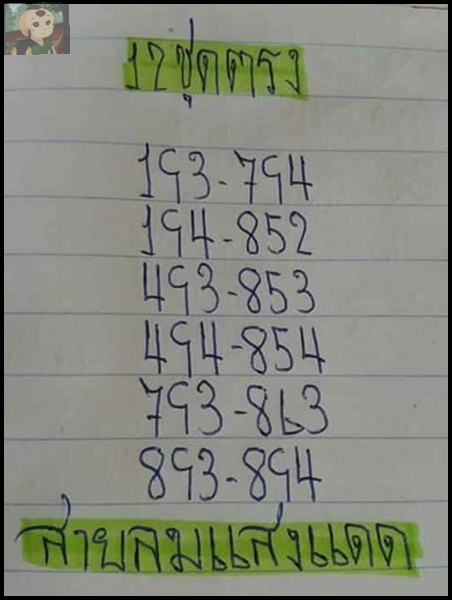 12ชุดตรง
193-794
194-852
493-853
494-854
793-863
893-894
สายลมแสงแดด